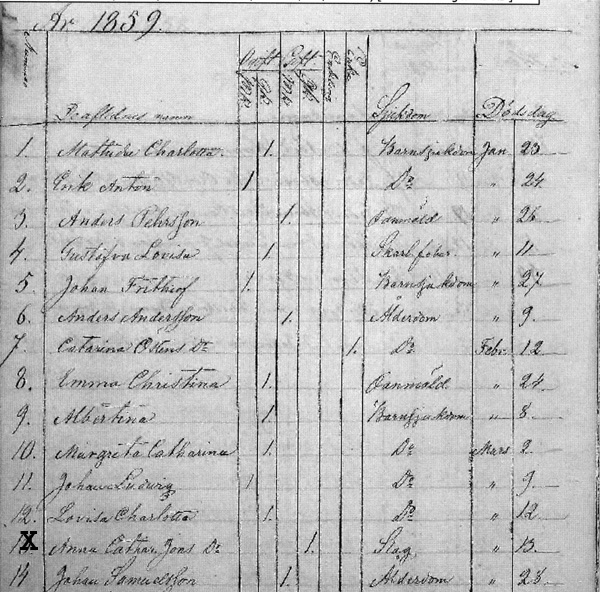 År 1859.
Numerus
Ogift Gift
Mk. Qk. Mk. Qk. Enkling Enka
Deaflednes namn Sjukdom Dödsdag
1. Mathilda Charlotta. 1. Barnsjukdom Jan 23
2. Erik Anton 1. Do " 24
3. Anders Pehrsson 1. Oanmäld " 26
4. Gustafva Lovisa 1. Skarl.feber " 11
5. Johan Frithiof 1. Barnsjukdom " 27
6. Anders Andersson 1. Ålderdom " 9.
7. Catarina Ds 1. Do Febr. 12
8. Emma Christina 1. Oanmäld " 24
9. Albertina 1. Barnsjukdom " 8.
10. Margreta Catharina 1. Do Mars 2
11. Johan Ludvig 1 Do " 9.
12. Lovisa Charlotta 1. Do " 12
X Anna Cathar. Jons Dr 1. Slag " 13.
14 Johan Samuelsson 1. Ålderdom " 28.